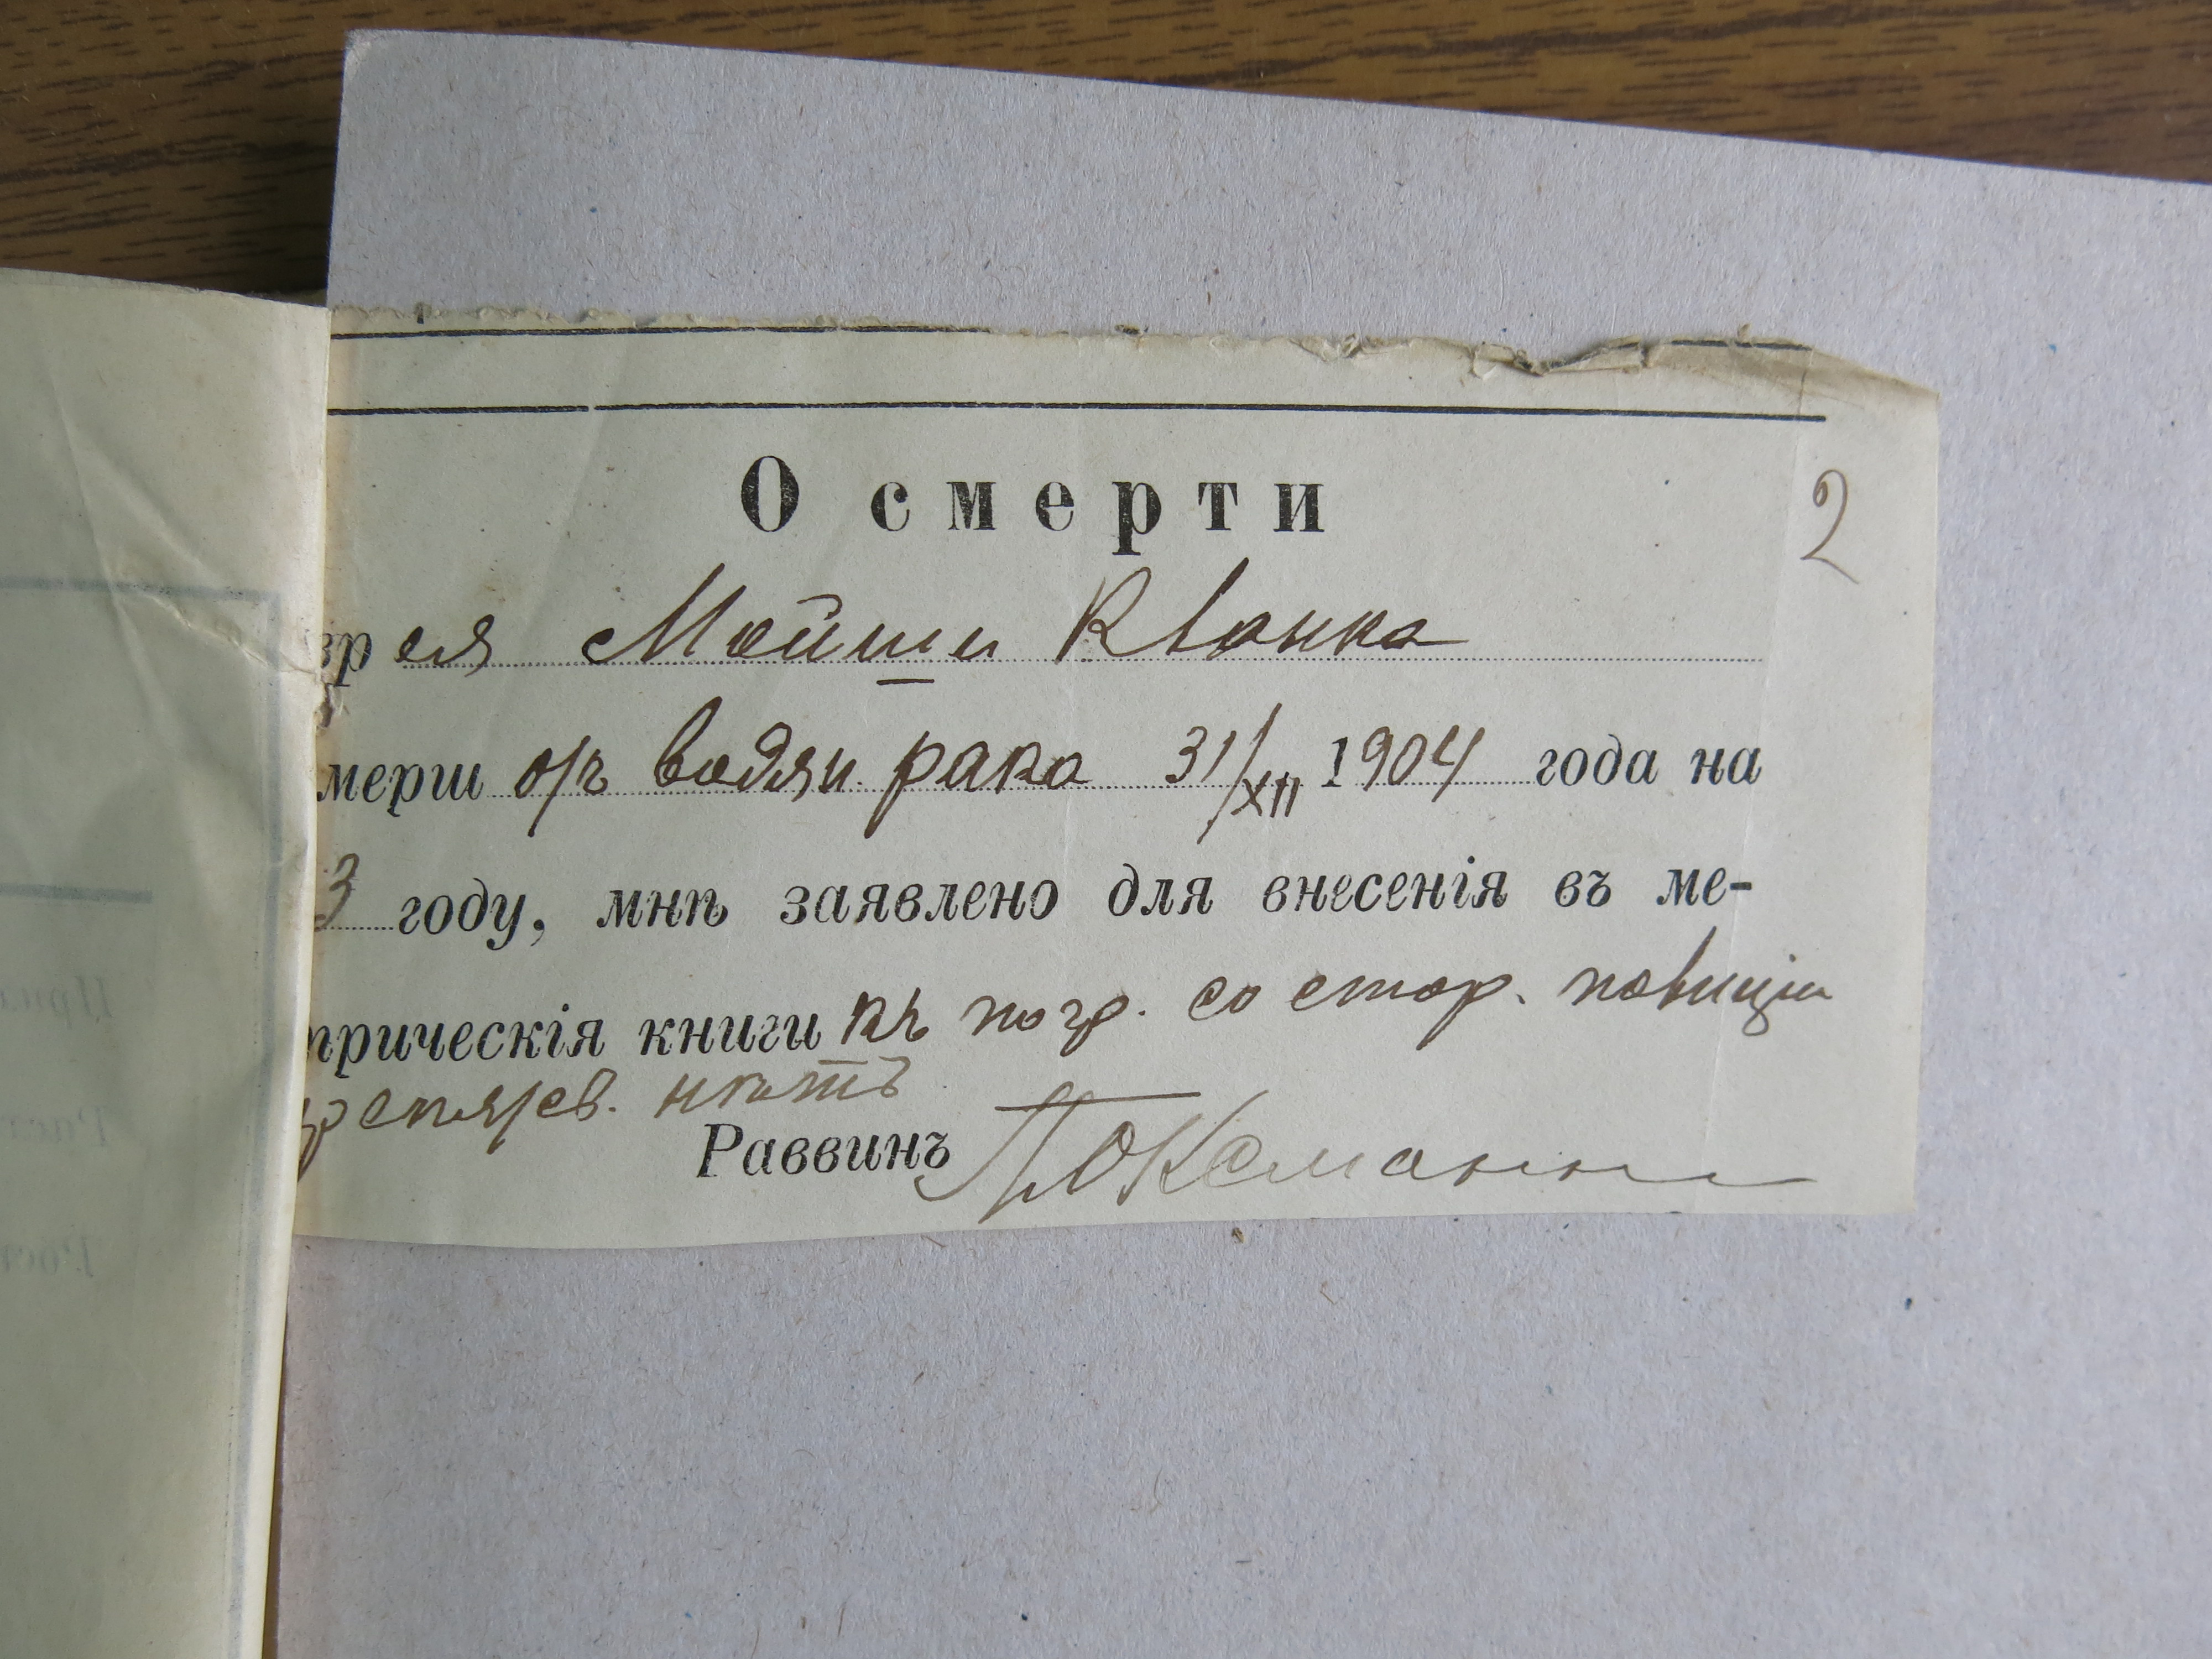 О смерти
2
врея Мойши Кванка
мерш отъ водян. рака 31/XII 1904 года на
3 году, мнѣ заявлено для внесенія въ ме-
трическія книги къ погр. со стор. полиціи
препятств. нѣтъ
Раввинъ